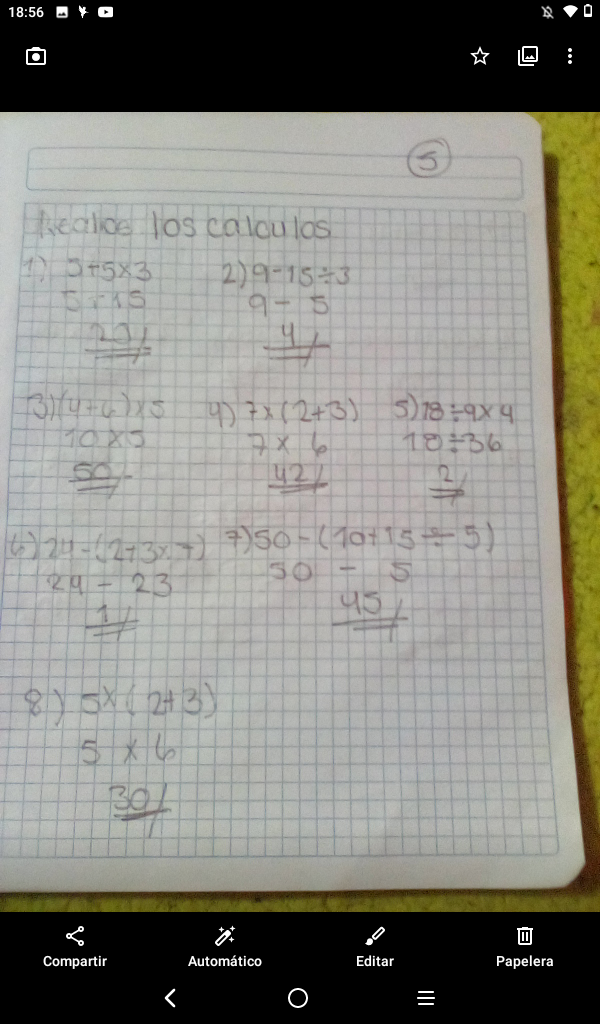 18:56
5
Realice los calculos
1) 5+5x3
5+15
20
2) 9-15÷3
9 - 5
4
3) (4+6)x5
10x5
50
4) 7x(2+3)
7 x 6
42
5) 18÷9x4
18÷36
2
6) 24-(2+3x7)
24 - 23
1
7) 50-(10+15÷5)
50 - 5
45
8) 5x(2+3)
5 x 6
30
Compartir
Automático
Editar
Papelera